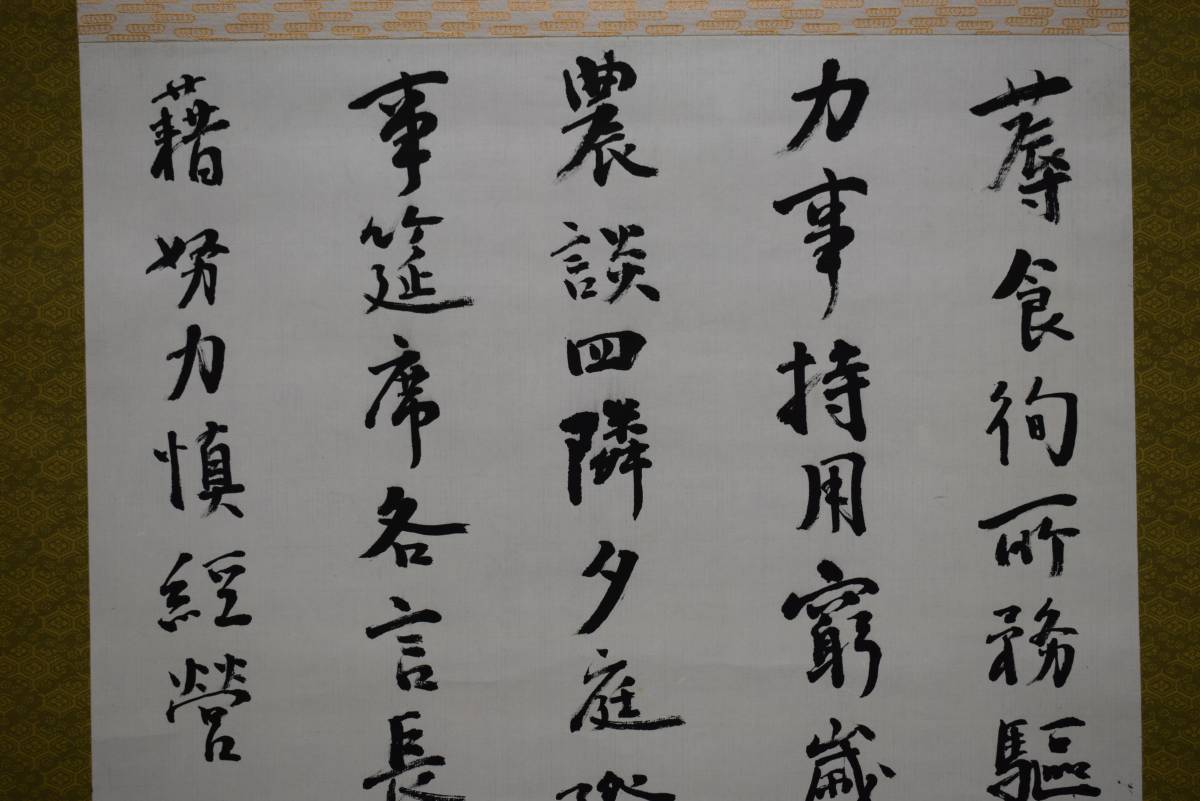 蓐食徇所務驅
力事持用窮歲
農談四隣夕庭
事筵席各言長
藉努力慎經營